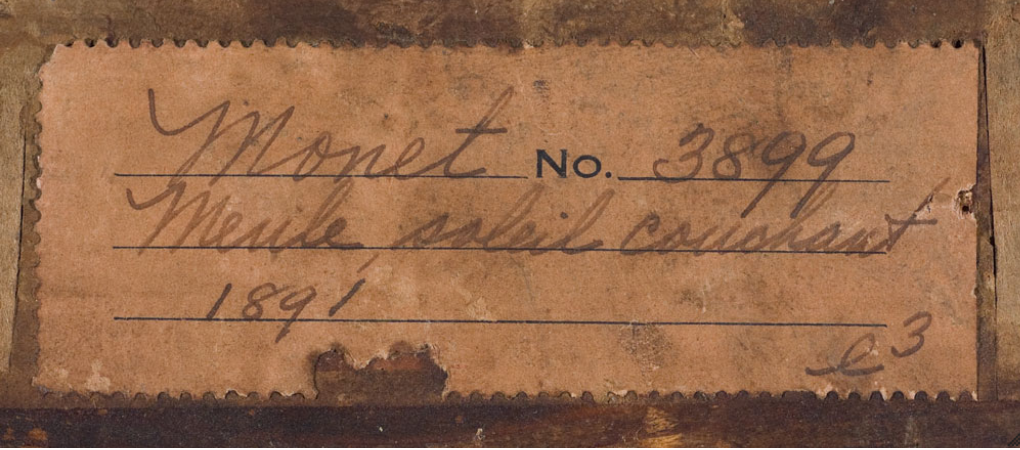 Monet No. 3899
Meule, soleil couchant
1891
e3